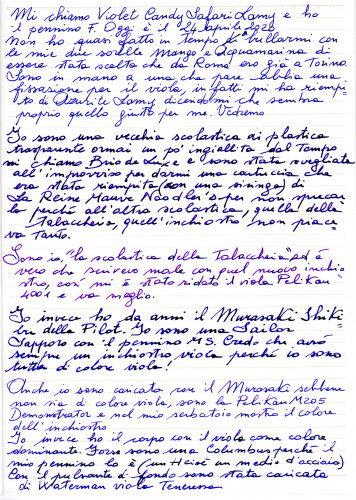 Mi chiamo Violet Candy Safari Lamy e ho
il pennino F. Oggi è il 24 aprile 2020
Non ho quasi fatto in tempo a bullarmi con
le mie due sorelle Mango e Acquamarina di
essere stata scelta che da Roma ero già a Torino.
Sono in mano a una che pare abbia una
fissazione per il viola, infatti mi ha riempi-
to di Lamy dicendomi che sembra
proprio quello giusto per me. Vedremo
Io sono una vecchia scolastica di plastica
trasparente ormai un po' ingiallita dal tempo
mi chiamo Brio de Luxe e sono stata svegliata
all'improvviso per darmi una cartuccia che
era stata riempita (con una siringa) di
La Reine Mauve Noodler's per non sprecar
la perché all'altra scolastica, quella della
tabaccheia, quell'inchiostro non piace
va tanto.
Sono io "la scolastica della Tabaccheia" ed è
vero che scrivevo male con quel nuovo inchio
stro, così mi è stato ridato il viola Pelikan
4001 e va meglio.
Io invece ho da anni il Murasaki Shiki
bu della Pilot. Io sono una Sailor
Sapporo con il pennino MS. Credo che avrò
sempre un inchiostro viola perché io sono
tutta di colore viola!
Anche io sono caricata con il Murasaki sebbene
non sia di colore viola, sono la Pelikan M205
Demonstrator e nel mio serbatoio mostro il colore
dell'inchiostro
Io invece ho il corpo con il viola come colore
dominante. Forse sono una Columbus perché il
mio pennino lo è (un Heise un medio d'acciaio)
Con il pulsante di fondo sono stata caricata
di Waterman viola Tenerezza